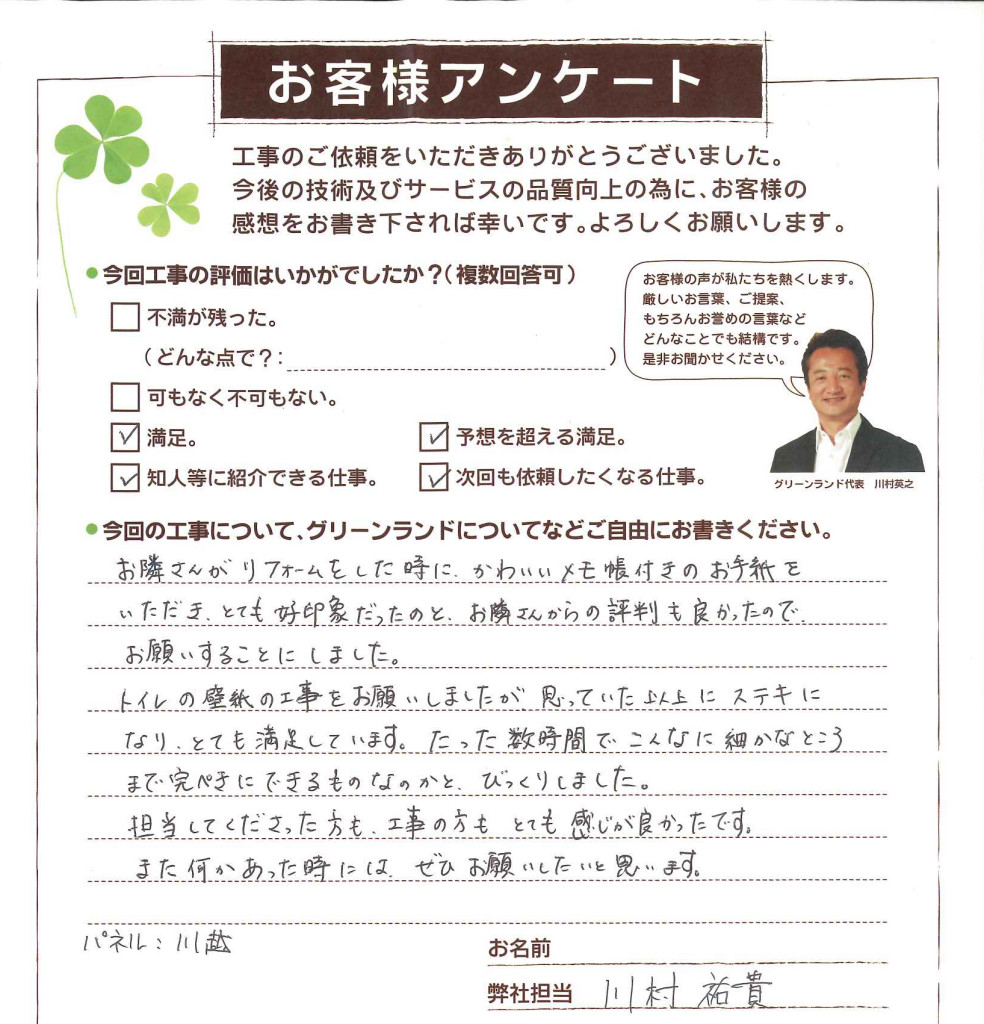 お客様アンケート
工事のご依頼をいただきありがとうございました。
今後の技術及びサービスの品質向上の為に、お客様の
感想をお書き下されば幸いです。よろしくお願いします。
●今回工事の評価はいかがでしたか？（複数回答可）
お客様の声が私たちを熱くします。
厳しいお言葉、ご提案、
もちろんお誉めの言葉など
どんなことでも結構です。
是非お聞かせください。
不満が残った。
（どんな点で？： ）
可もなく不可もない。
満足。
予想を超える満足。
知人等に紹介できる仕事。
次回も依頼したくなる仕事。
グリーンランド代表 川村英之
●今回の工事について、グリーンランドについてなどご自由にお書きください。
お隣さんがリフォームをした時に、かわいいメモ帳付きのお手紙を
いただき、とても好印象だったのと、お隣さんからの評判も良かったので、
お願いすることにしました。
トイレの壁紙の工事をお願いしましたが、思っていた以上にステキに
なり、とても満足しています。たった数時間でこんなに細かなところ
まで完ぺきにできるものなのかと、びっくりしました。
担当してくださった方も、工事の方もとても感じが良かったです。
また何かあった時には、ぜひお願いしたいと思います。
パネル：川越
お名前
弊社担当 川村 祐貴